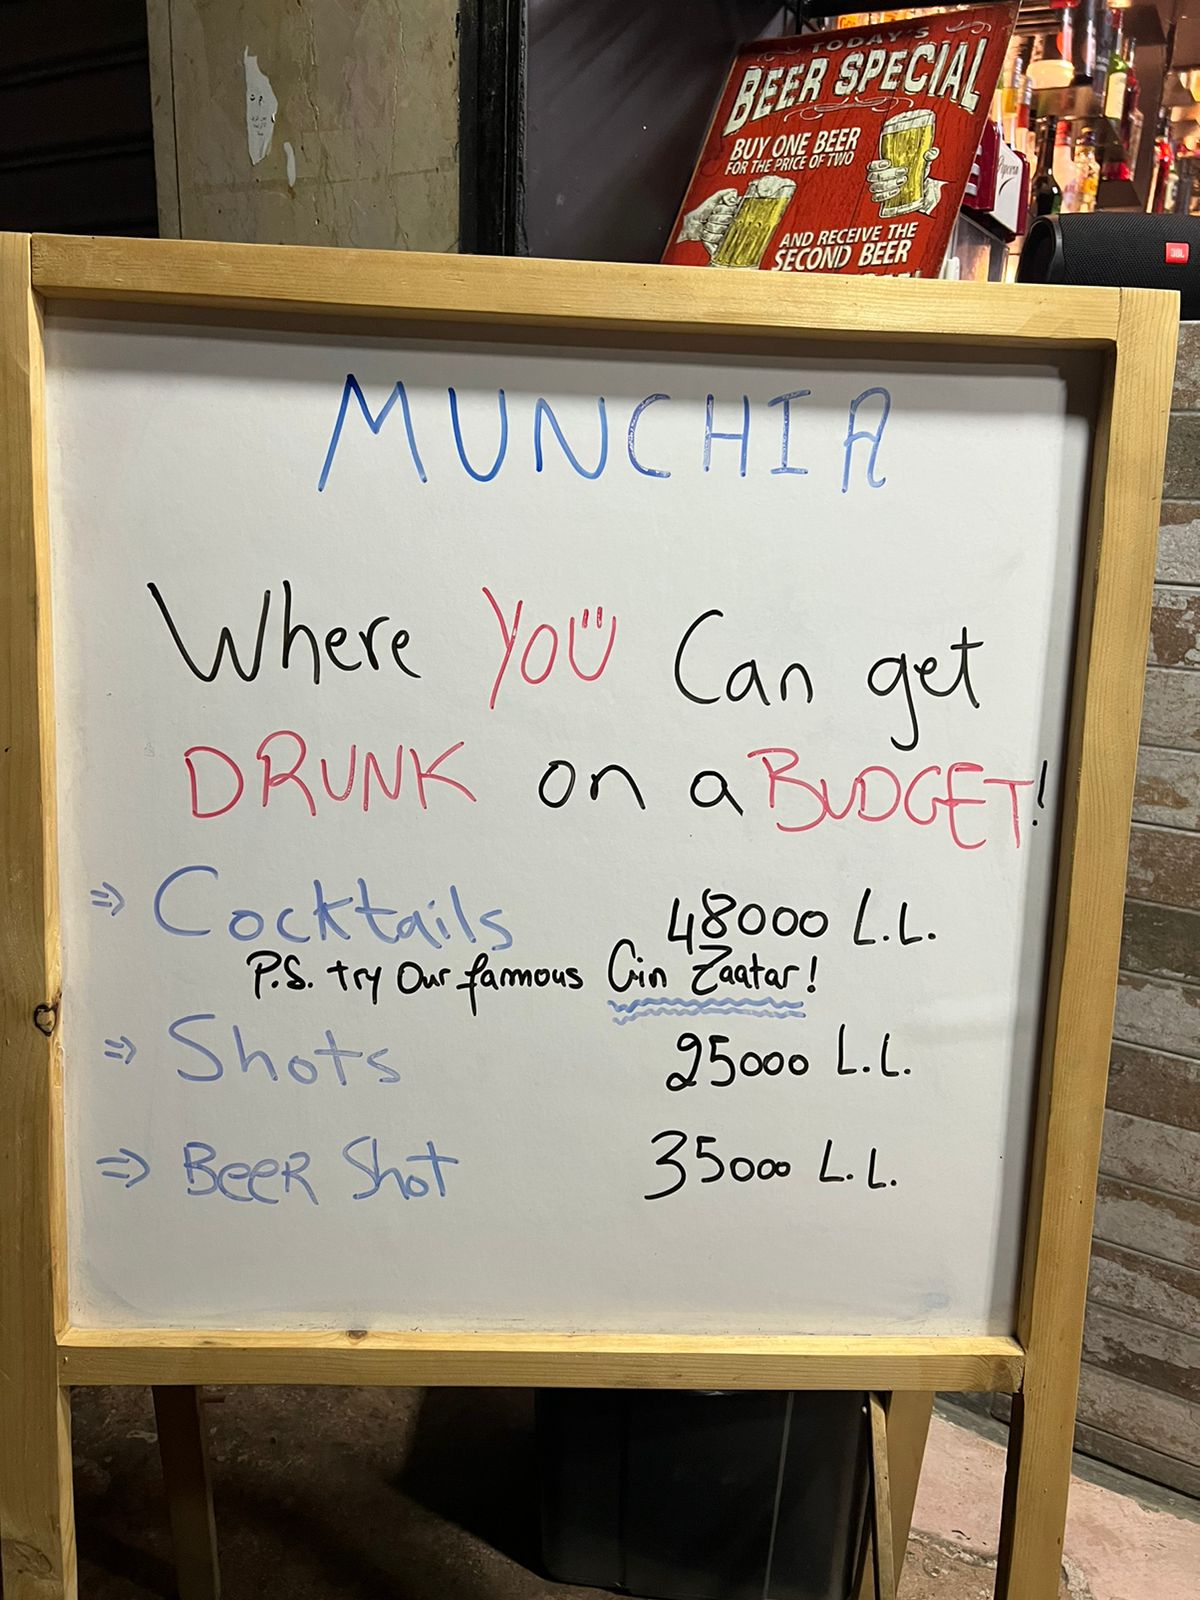 TODAY'S
BEER SPECIAL
BUY ONE BEER
FOR THE PRICE OF TWO
AND RECEIVE THE
SECOND BEER
Popcorn
JBL
MUNCHIA
Where YOU Can get
DRUNK on a BUDGET!
⇒ Cocktails 48000 L.L.
P.S. try Our fammous Gin Zaatar!
⇒ Shots 25000 L.L.
⇒ BeeR Shot 35000 L.L.